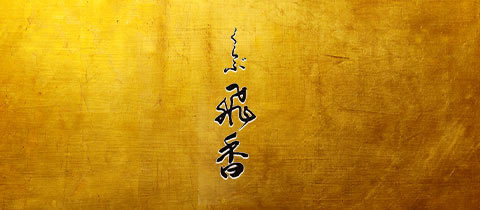 くらぶ 飛香